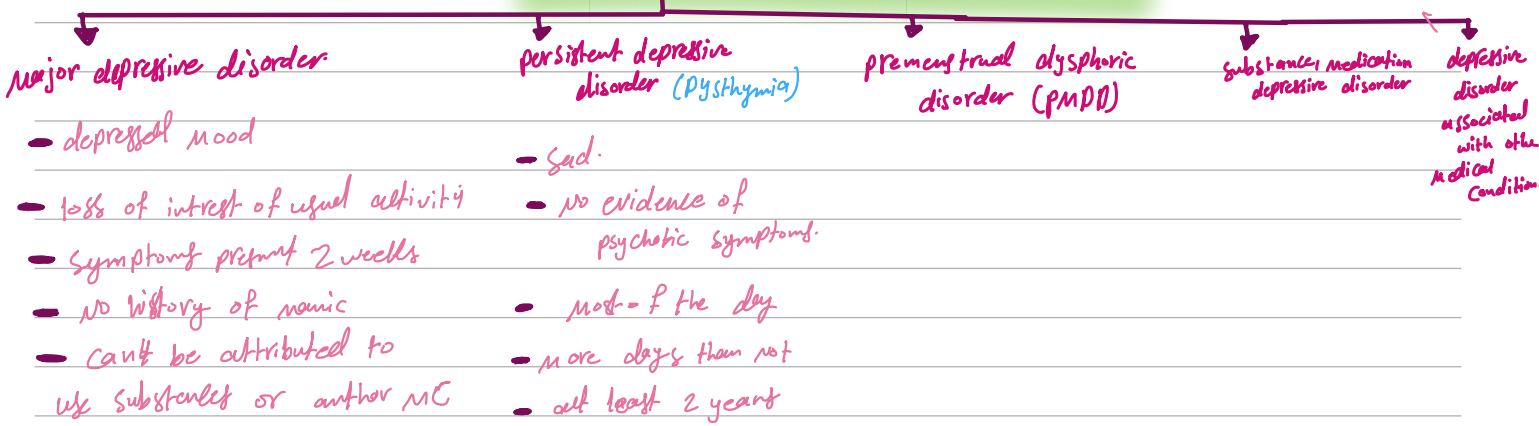 Major depressive disorder.
depressed mood
loss of intrest of usual activity
symptoms presnt 2 weeks
No history of manic
can't be attributed to
use substances or author MC
persistent depressive
disorder (Dysthymia)
sad.
No evidence of
psychotic symptoms.
most of the day
more days than not
at least 2 years
premenstrual dysphoric
disorder (PMDD)
substance, medication
depressive disorder
depressive
disorder
associated
with othe
medical
Condition